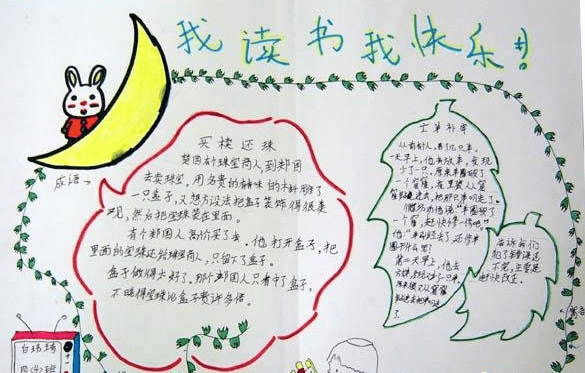 我读书我快乐!
成语→
买椟还珠
楚国有个珠宝商人,到郑国
去卖珠宝。用名贵的有香味的木料雕了
一只盒子,又想方设法把盒子装饰得很美
观,然后把宝珠装在里面。
有个郑国人高价买了去。他打开盒子,把
里面的宝珠还给珠商人,只留下了盒子。
盒子做得太好了。那个郑国人只看中了盒子,
不晓得宝珠比盒子贵许多倍。
亡羊补牢
从前有人,养几只羊。
一天早上,他去放羊,发现
少了一只。原来羊圈破了
一个窟窿,夜里狼从窟
窿钻进去,把那只羊叼走了。
街坊劝他说:"羊圈破了
一个窟窿,赶快修一修吧!"
他说:"羊都丢了,还修羊
圈干什么呢?
第二天早上,他去
羊又从窟窿
告诉我们
犯了错误还
不要紧,主要是
赶快改正。
四(4)班